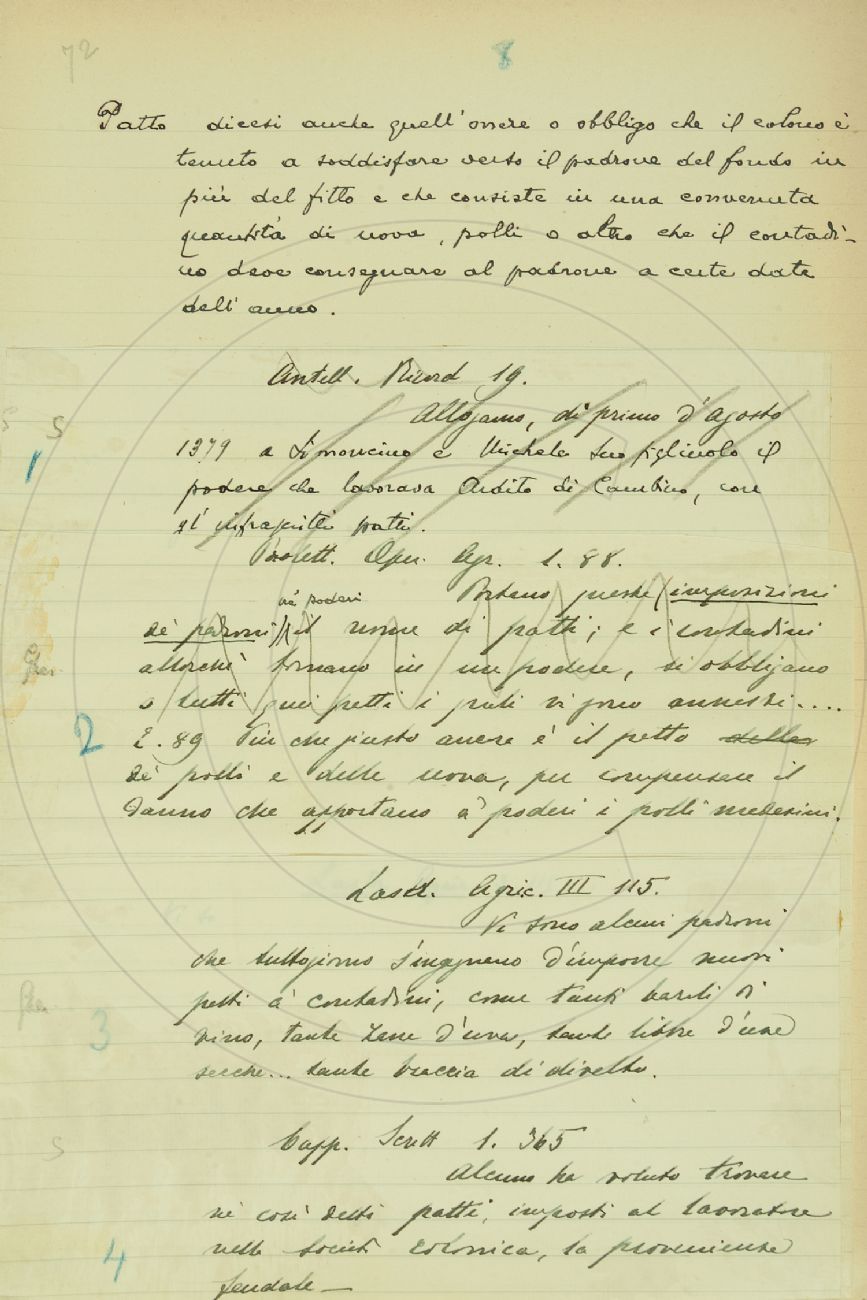 72
8
Patto dicesi anche quell'onere o obbligo che il colono è
tenuto a soddisfare verso il padrone del fondo in
più del fitto e che consiste in una convenuta
quantità di uova, polli o altro che il contadi-
no deve consegnare al padrone a certe date
dell'anno.
Antell. Ricord 19.
S
Allogamo, di primo d'agosto
1
1379 a Simoncino e Michele suo figliuolo il
podere che lavorava Ardito di Cambino, con
gl'infrascritti patti.
Paolett. Oper. Agr. 1. 88.
Portano queste (imposizioni
ne' poderi
de' padroni) il nome di patti; e i contadini
allorchè tornano in un podere, si obbligano
a tutti quei patti i quali vi sono annessi....
2
E. 89 Più che giusto ancora è il patto delle
de' polli e delle uova, per compensare il
danno che apportano a' poderi i polli medesimi.
Lastr. Agric. III 115.
Vi sono alcuni padroni
che tuttogiorno s'ingegnano d'imporre nuovi
patti a' contadini, come tanti barili di
3
vino, tante zane d'uva, tante libbre d'uve
secche... tante braccia di divelto.
Capp. Scritt 1. 365
S
Alcuno ha voluto trovare
ne' così detti patti, imposti al lavoratore
4
nella Società colonica, la provenienza
feudale —